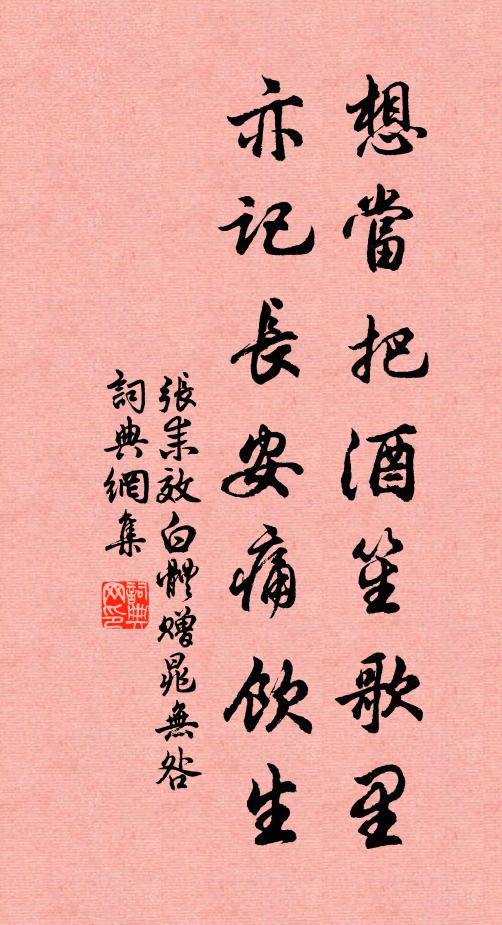 想當把酒笙歌里
亦記長安痛飲生
張耒效白體贈晁無咎
詞典網集
詞典网印